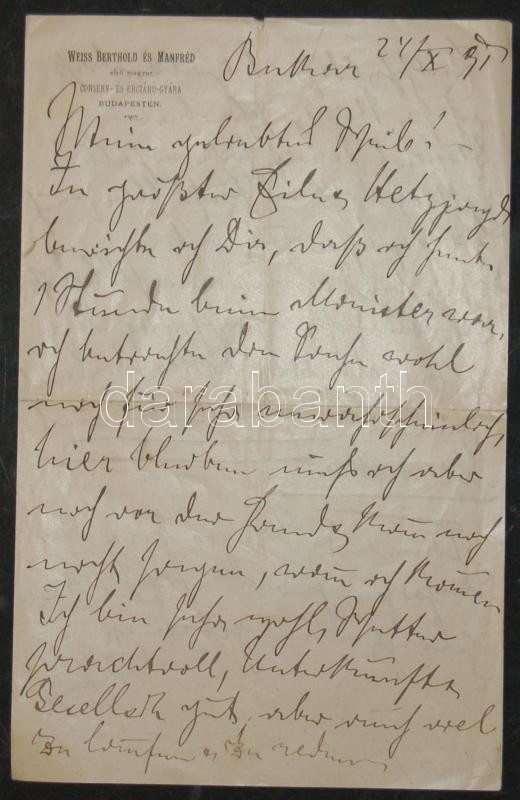 WEISS BERTHOLD ÉS MANFRÉD
első magyar
CONSERV- ÉS ÉRCZÁRÚ-GYÁRA
BUDAPESTEN.
24/X 91
Meine geliebtes Weib!
In größter Eile & Hetzjagd
berichte ich Dir, daß ich heute
1 Stunde beim Minister war,
ich betrachte die Sache wohl
noch für sehr unwahrscheinlich,
hier bleiben muß ich aber
noch vor der Hand & kann noch
nicht sagen, wann ich komme
Ich bin sehr wohl,
prachtvoll, Unterkunft &
Gesellsch. gut, aber auch viel
zu laufen & zu reden
darabanth